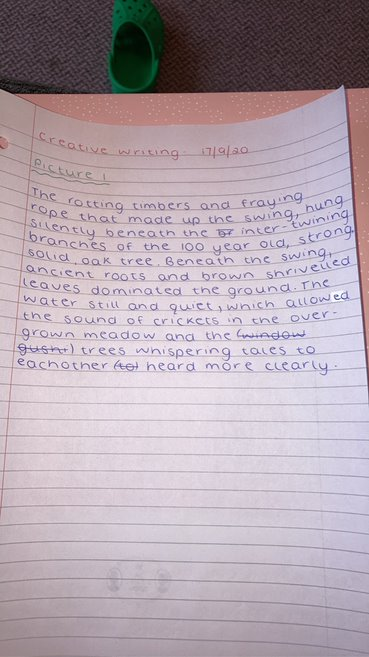 Creative Writing. 17/9/20
Picture 1
The rotting timbers and fraying
rope that made up the swing, hung
silently beneath the inter-twining
branches of the 100 year old, strong,
solid, oak tree. Beneath the swing,
ancient roots and brown shrivelled
leaves dominated the ground. The
water still and quiet, which allowed
the sound of crickets in the over-
grown meadow and the (window
gusht) trees whispering tales to
eachother (to) heard more clearly.